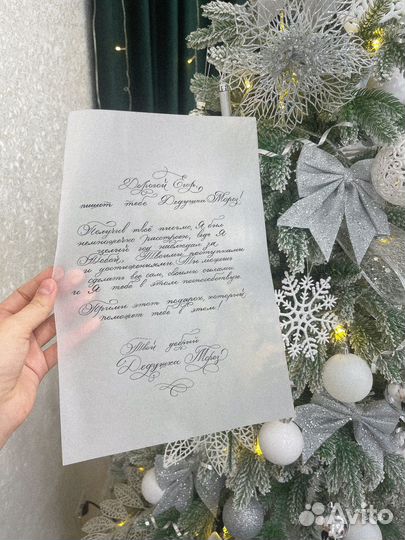 Дорогой Егор,
пишет тебе Дедушка Мороз!
Получив твоё письмо, Я был
немножечко расстроен, ведь Я
целый год наблюдал за
Тобой, Твоими поступками
и достижениями. Ты можешь
сделать всё сам, своими силами
и Я тебе в этом поспособствую.
Прими этот подарок, который
поможет тебе в этом!
Твой добрый
Дедушка Мороз
Avito